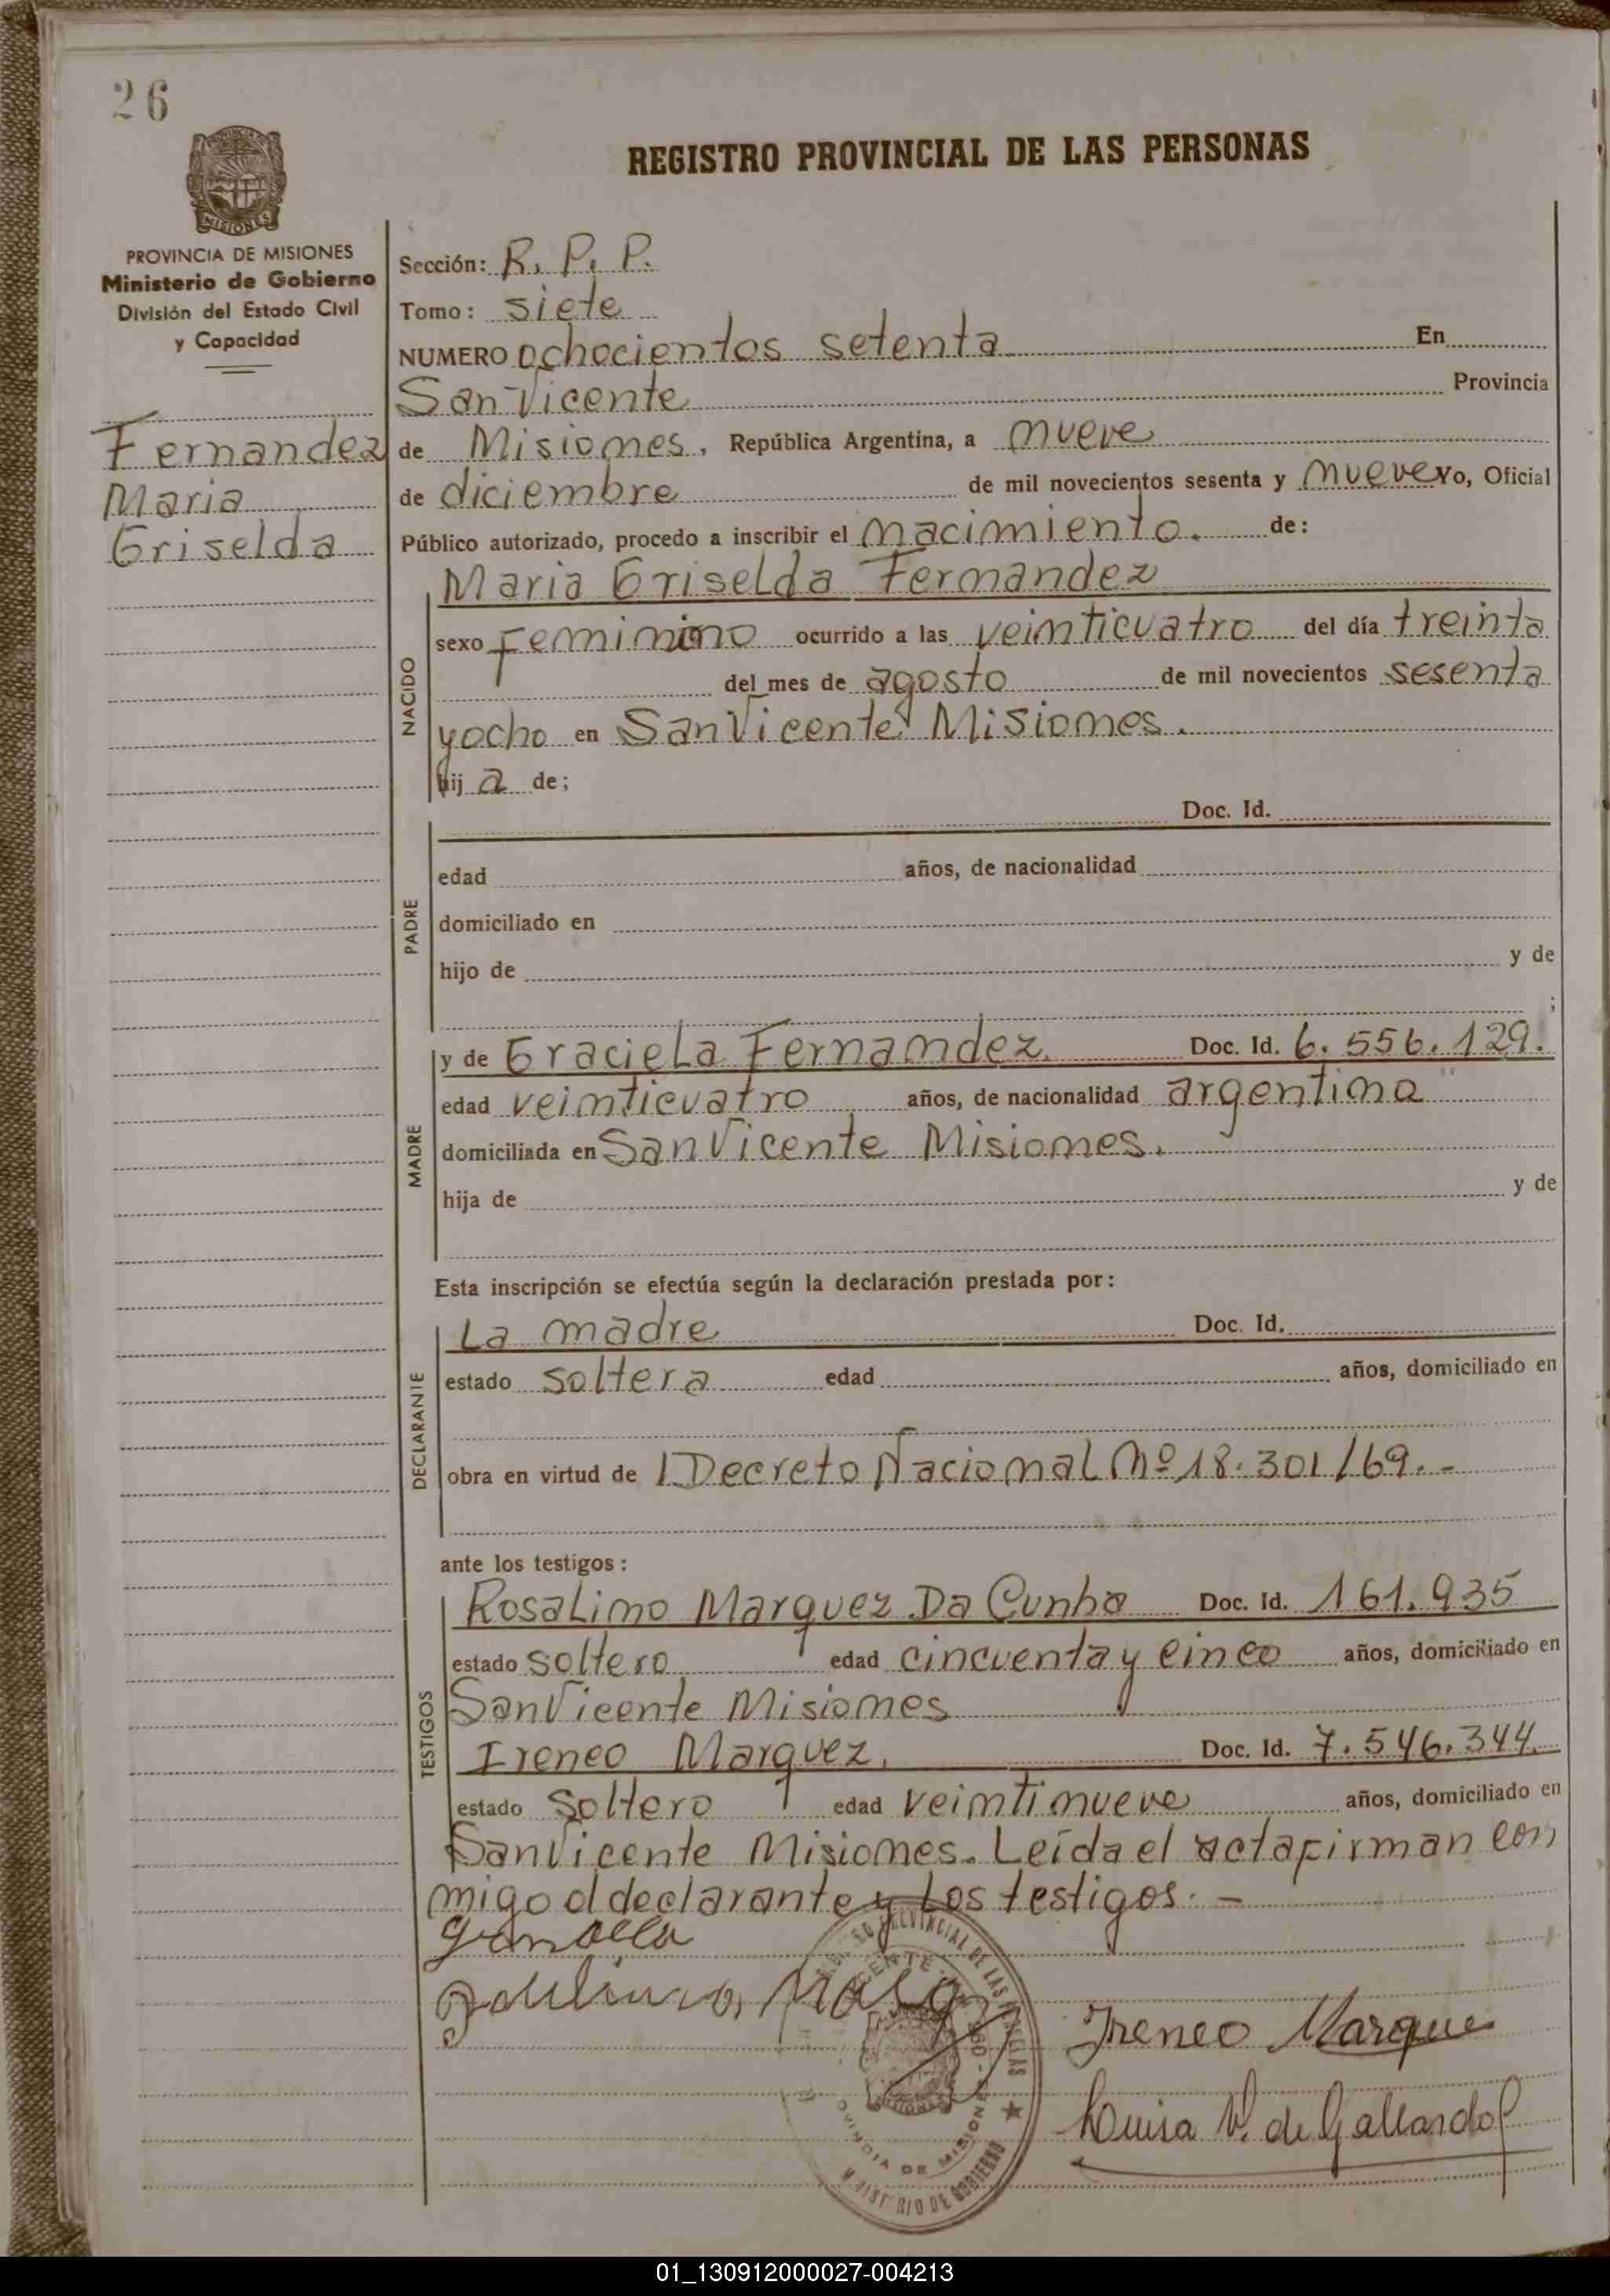 26
MISIONES
REGISTRO PROVINCIAL DE LAS PERSONAS
PROVINCIA DE MISIONES
Ministerio de Gobierno
División del Estado Civil
y Capacidad
Fernandez
Maria
Griselda
Sección: R. P. P.
Tomo: siete
NUMERO ochocientos setenta En
San Vicente Provincia
de Misiones, República Argentina, a nueve
de diciembre de mil novecientos sesenta y nueve Yo, Oficial
Público autorizado, procedo a inscribir el nacimiento. de:
NACIDO
Maria Griselda Fernandez
sexo Feminino ocurrido a las veinticuatro del día treinta
del mes de agosto de mil novecientos sesenta
y ocho en San Vicente Misiones.
hij a de;
PADRE
Doc. Id.
edad años, de nacionalidad
domiciliado en
hijo de y de
;
MADRE
y de Graciela Fernandez. Doc. Id. 6.556.129.
edad veinticuatro años, de nacionalidad argentina
domiciliada en San Vicente Misiones.
hija de y de
Esta inscripción se efectúa según la declaración prestada por:
DECLARANTE
La madre Doc. Id.
estado soltera edad años, domiciliado en
obra en virtud de Decreto Nacional Nº 18.301/69.-
ante los testigos:
TESTIGOS
Rosalino Marquez Da Cunha Doc. Id. 161.935
estado soltero edad cincuenta y cinco años, domiciliado en
San Vicente Misiones
Ireneo Marquez. Doc. Id. 7.546.344.
estado soltero edad veintinueve años, domiciliado en
San Vicente Misiones. Leída el acta firman con
migo el declarante y los testigos. -
Ireneo Marque
Luisa V. de Gallardo
PROVINCIAL DE LAS
PROVINCIA DE MISIONES
MINISTERIO DE GOBIERNO
01_130912000027-004213